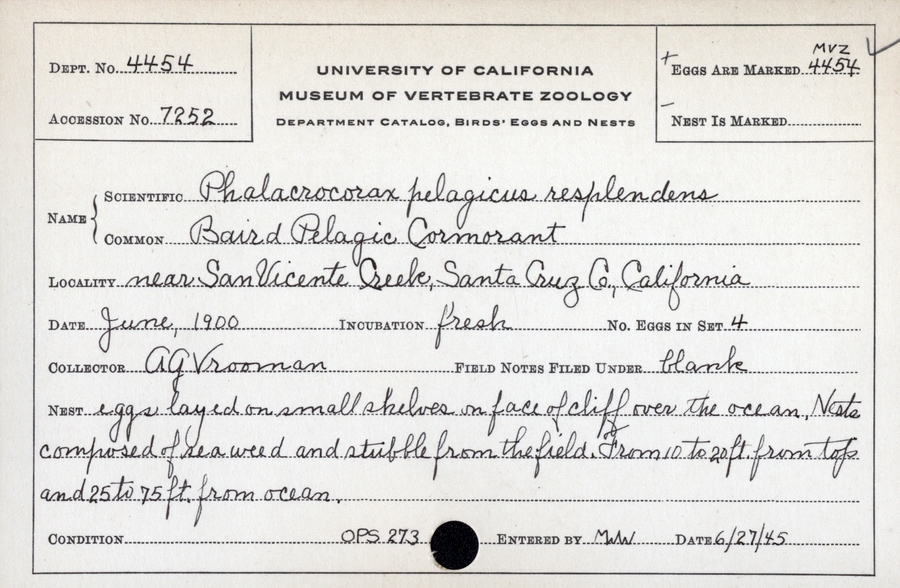 Dept. No. 4454
Accession No. 7252
UNIVERSITY OF CALIFORNIA
MUSEUM OF VERTEBRATE ZOOLOGY
Department Catalog, Birds' Eggs and Nests
MVZ
+ Eggs Are Marked 4454
- Nest Is Marked
Name { Scientific Phalacrocorax pelagicus resplendens
Common Baird Pelagic Cormorant
Locality near San Vicente Creek, Santa Cruz Co., California
Date June, 1900 Incubation fresh No. Eggs in Set 4
Collector AG Vrooman Field Notes Filed Under blank
Nest eggs layed on small shelves on face of cliff over the ocean. Nests
composed of sea weed and stubble from the field. From 10 to 20 ft. from top
and 25 to 75 ft. from ocean.
Condition OPS 273 Entered by MWW Date 6/27/45